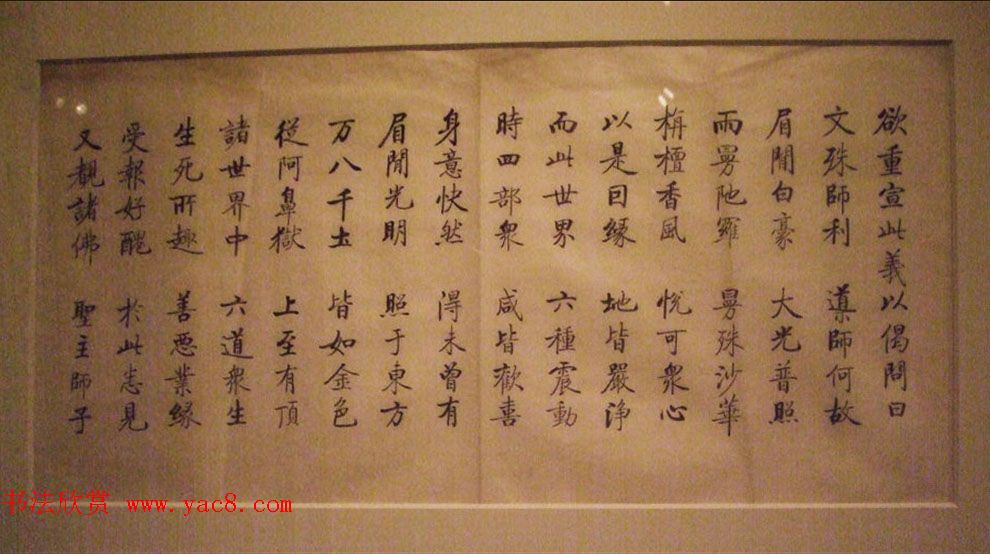 欲重宣此義以偈問曰
文殊師利 導師何故
眉間白豪 大光普照
雨曼陁羅 曼殊沙華
栴檀香風 悅可眾心
以是因緣 地皆嚴淨
而此世界 六種震動
時四部眾 咸皆歡喜
身意快然 得未曾有
眉間光明 照于東方
万八千土 皆如金色
從阿鼻獄 上至有頂
諸世界中 六道眾生
生死所趣 善惡業緣
受報好醜 於此悉見
又覩諸佛 聖主師子
书法欣赏 www.yac8.com